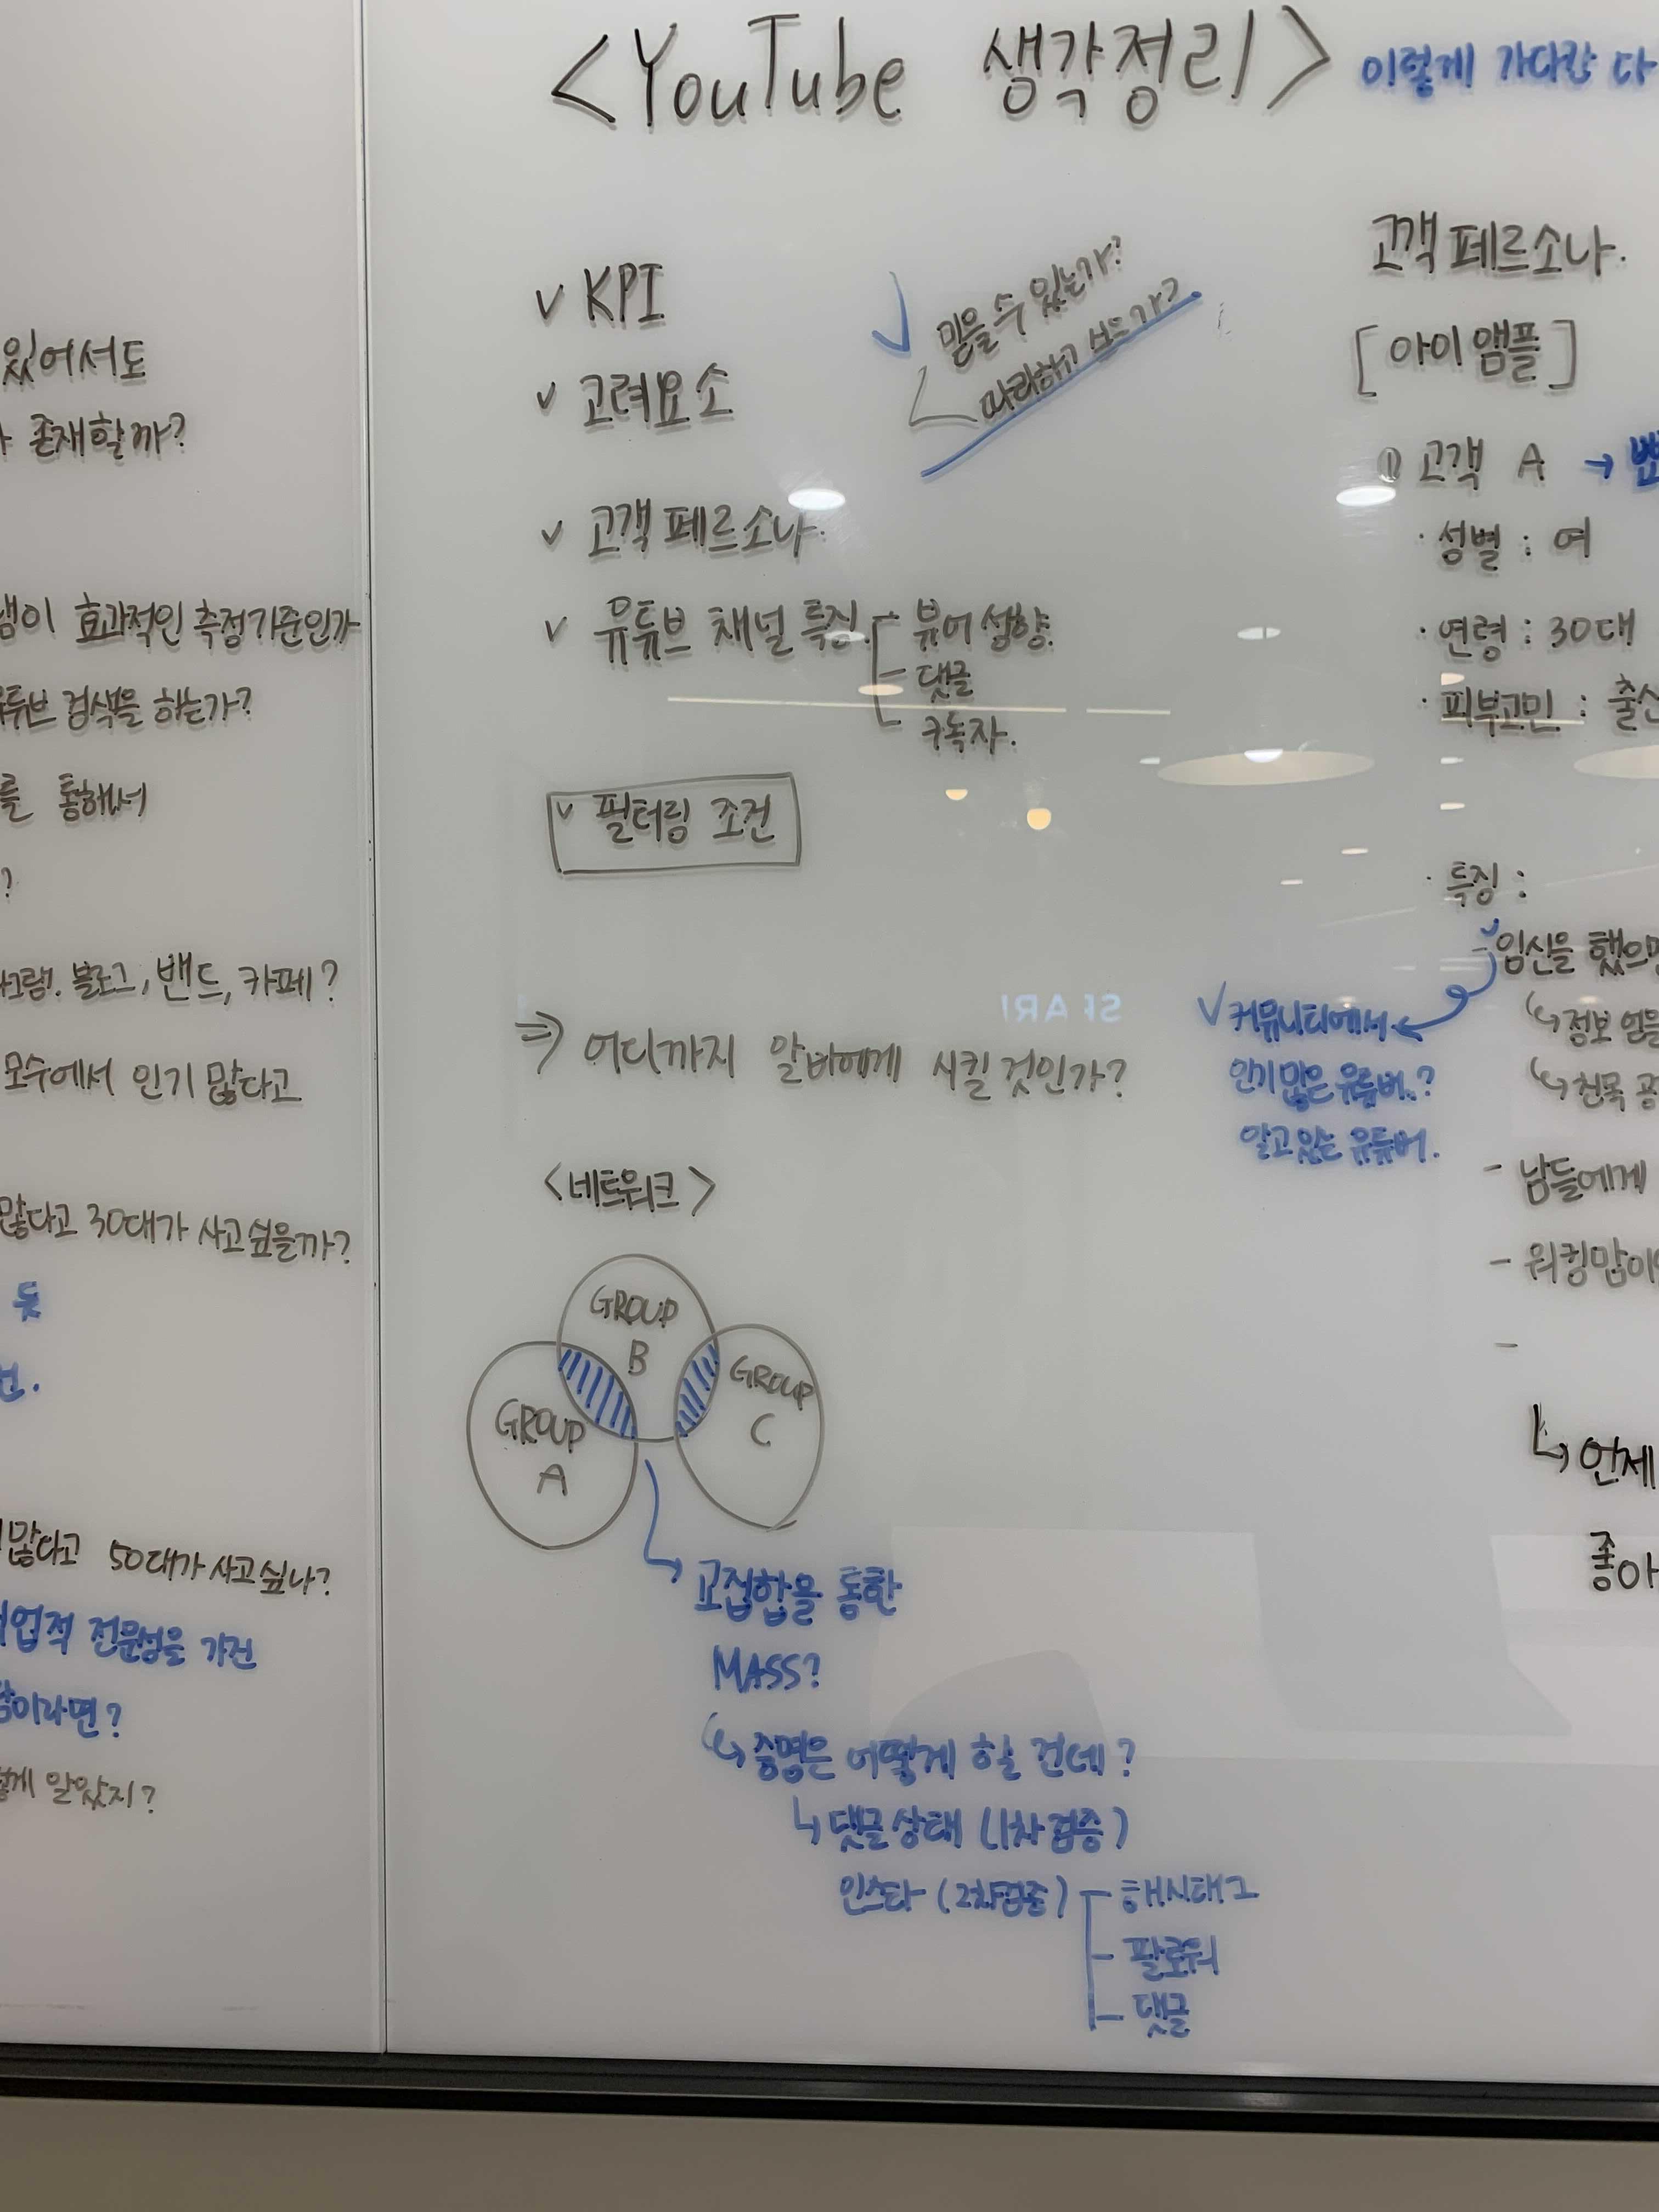 있어서도
존재할까?
효과적인 측정기준인가
검색을 하는가?
를 통해서
?
블로그, 밴드, 카페?
모수에서 인기 많다고
많다고 30대가 사고싶을까?
듯
많다고 50대가 사고싶나?
전문성을 가진
이라면?
알았지?
<YouTube 생각정리>
이렇게 가다간 다
✓ KPI
✓ 고려요소
믿을 수 있는가?
따라하고 싶은가?
✓ 고객 페르소나.
✓ 유튜브 채널 특징.
뷰어 성향.
댓글
구독자.
✓ 필터링 조건
⇒ 어디까지 알바에게 시킬 것인가?
<네트워크>
GROUP
B
GROUP
A
GROUP
C
→ 교집합을 통한
MASS?
↳ 증명은 어떻게 할 건데?
↳ 댓글상태 (1차검증)
인스타 (2차검증)
해시태그
팔로워
댓글
고객 페르소나.
[아이앰플]
① 고객 A →
· 성별 : 여
· 연령 : 30대
· 피부고민 :
· 특징 :
- 임신을
✓ 커뮤니티에서
인기많은 유튜버.?
알고있는 유튜버.
↳ 정보
↳ 친목
- 남들에게
- 워킹맘이
-
↳ 언제
좋아